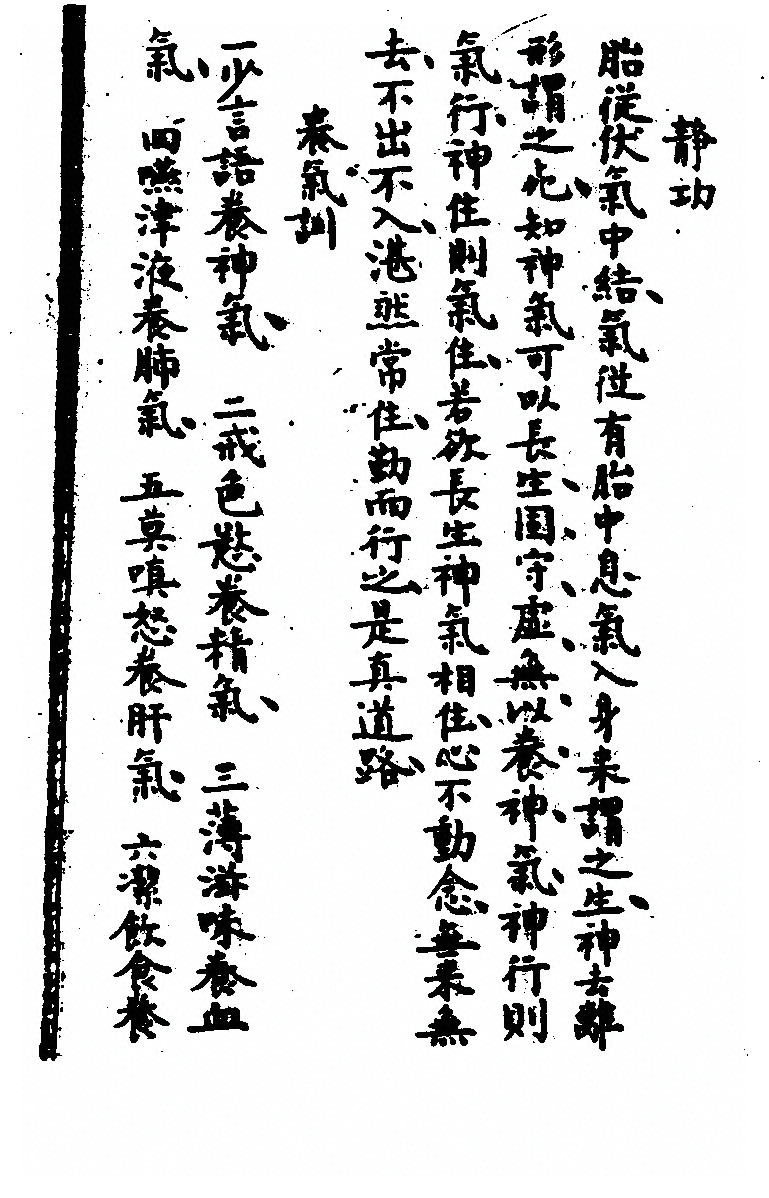 靜功
胎從伏氣中結、氣從有胎中息氣入身來謂之生、神去離
形謂之死、知神氣可以長生、固守虛無以養神、氣神行則
氣行、神住則氣住、若欲長生神氣相住、心不動念、無來無
去、不出不入、湛然常住、勤而行之、是真道路、
養氣訓
一少言語養神氣、 二戒色慾養精氣、 三薄滋味養血
氣、 四嚥津液養肺氣、 五莫嗔怒養肝氣、 六潔飲食養